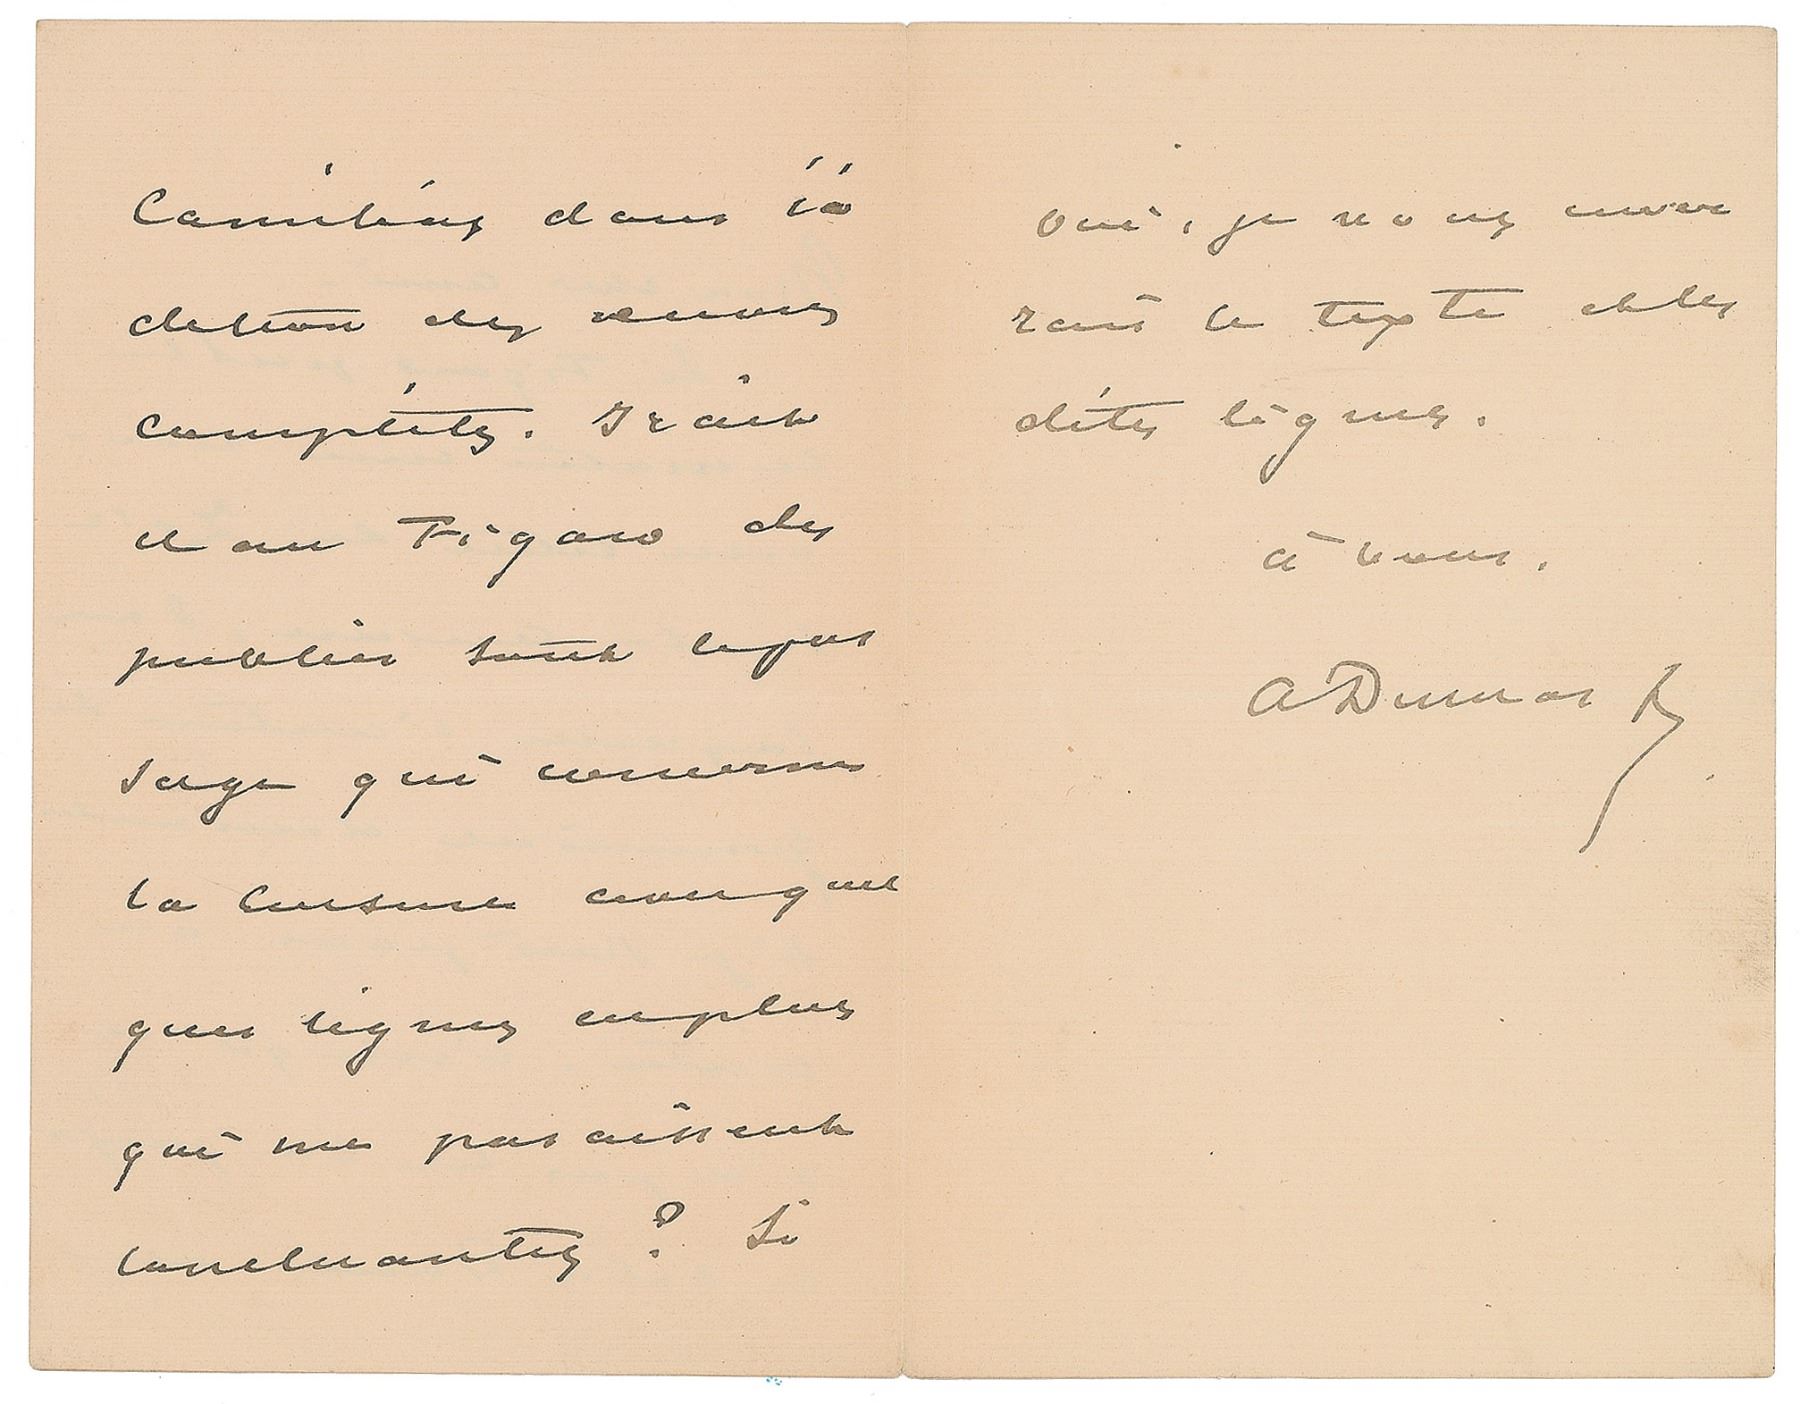 Camélias dans l'é
dition des œuvres
complètes. Irait
il au Figaro de
publier tout le pas
sage qui concerne
la Censure avec quel
ques lignes en plus
qui me paraissent
concluantes ? Si
oui, je vous enver
rais le texte et les
dites lignes.
à vous.
ADumas f